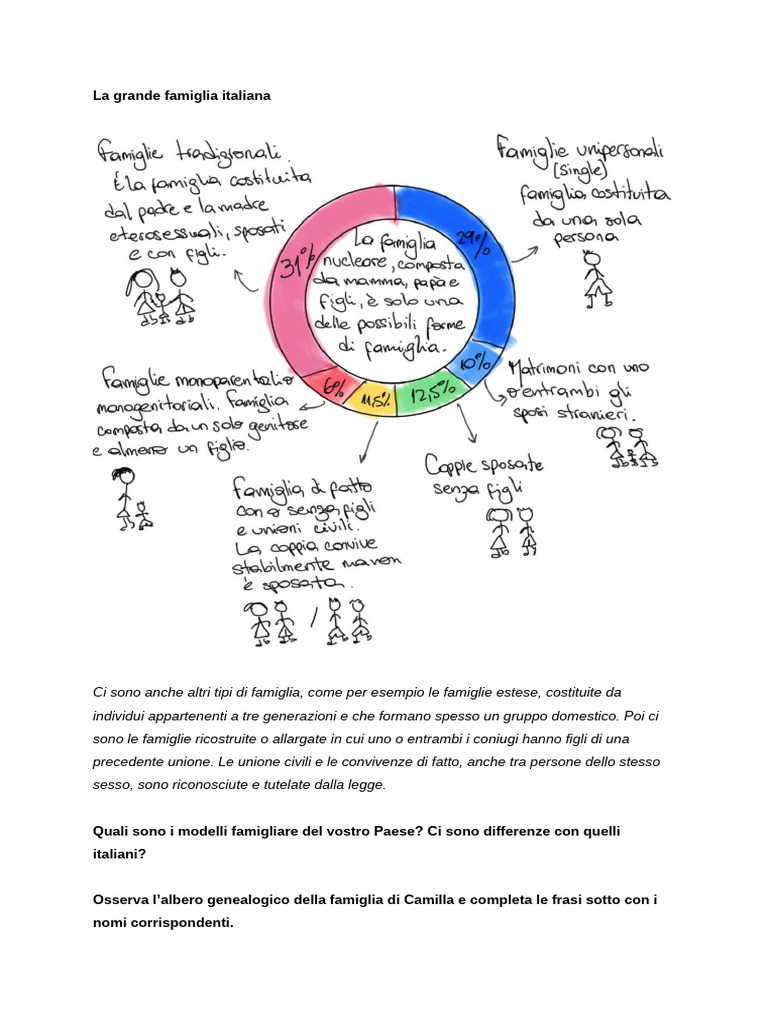 La grande famiglia italiana
Famiglie tradizionali.
È la famiglia costituita
dal padre e la madre
eterosessuali, sposati
e con figli.
31%
La famiglia
nucleare, composta
da mamma, papà e
figli, è solo una
delle possibili forme
di famiglia.
29%
Famiglie unipersonali
(single)
famiglia costituita
da una sola
persona
10%
Matrimoni con uno
o entrambi gli
sposi stranieri.
12,5%
Coppie sposate
senza figli
11,5%
Famiglia di fatto
con o senza figli
e unioni civili.
La coppia convive
stabilmente ma non
è sposata.
6%
Famiglie monoparentali o
monogenitoriali. Famiglia
composta da un solo genitore
e almeno un figlio.
Ci sono anche altri tipi di famiglia, come per esempio le famiglie estese, costituite da
individui appartenenti a tre generazioni e che formano spesso un gruppo domestico. Poi ci
sono le famiglie ricostruite o allargate in cui uno o entrambi i coniugi hanno figli di una
precedente unione. Le unione civili e le convivenze di fatto, anche tra persone dello stesso
sesso, sono riconosciute e tutelate dalla legge.
Quali sono i modelli famigliare del vostro Paese? Ci sono differenze con quelli
italiani?
Osserva l’albero genealogico della famiglia di Camilla e completa le frasi sotto con i
nomi corrispondenti.